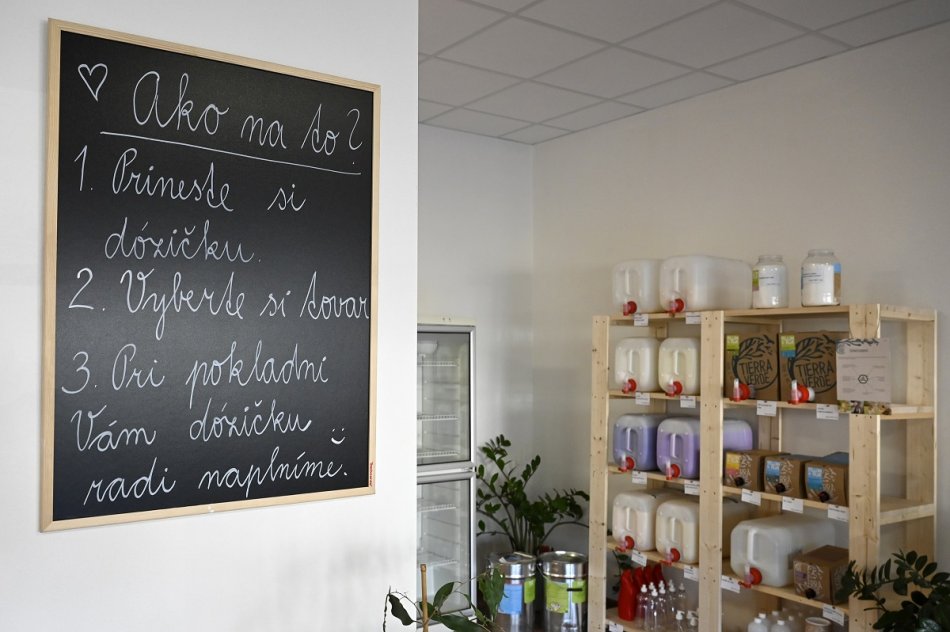 ♡ Ako na to?
1. Prineste si
dózičku.
2. Vyberte si tovar
3. Pri pokladni
Vám dózičku
radi naplníme.
TIERRA
VERDE
TIERRA
VERDE